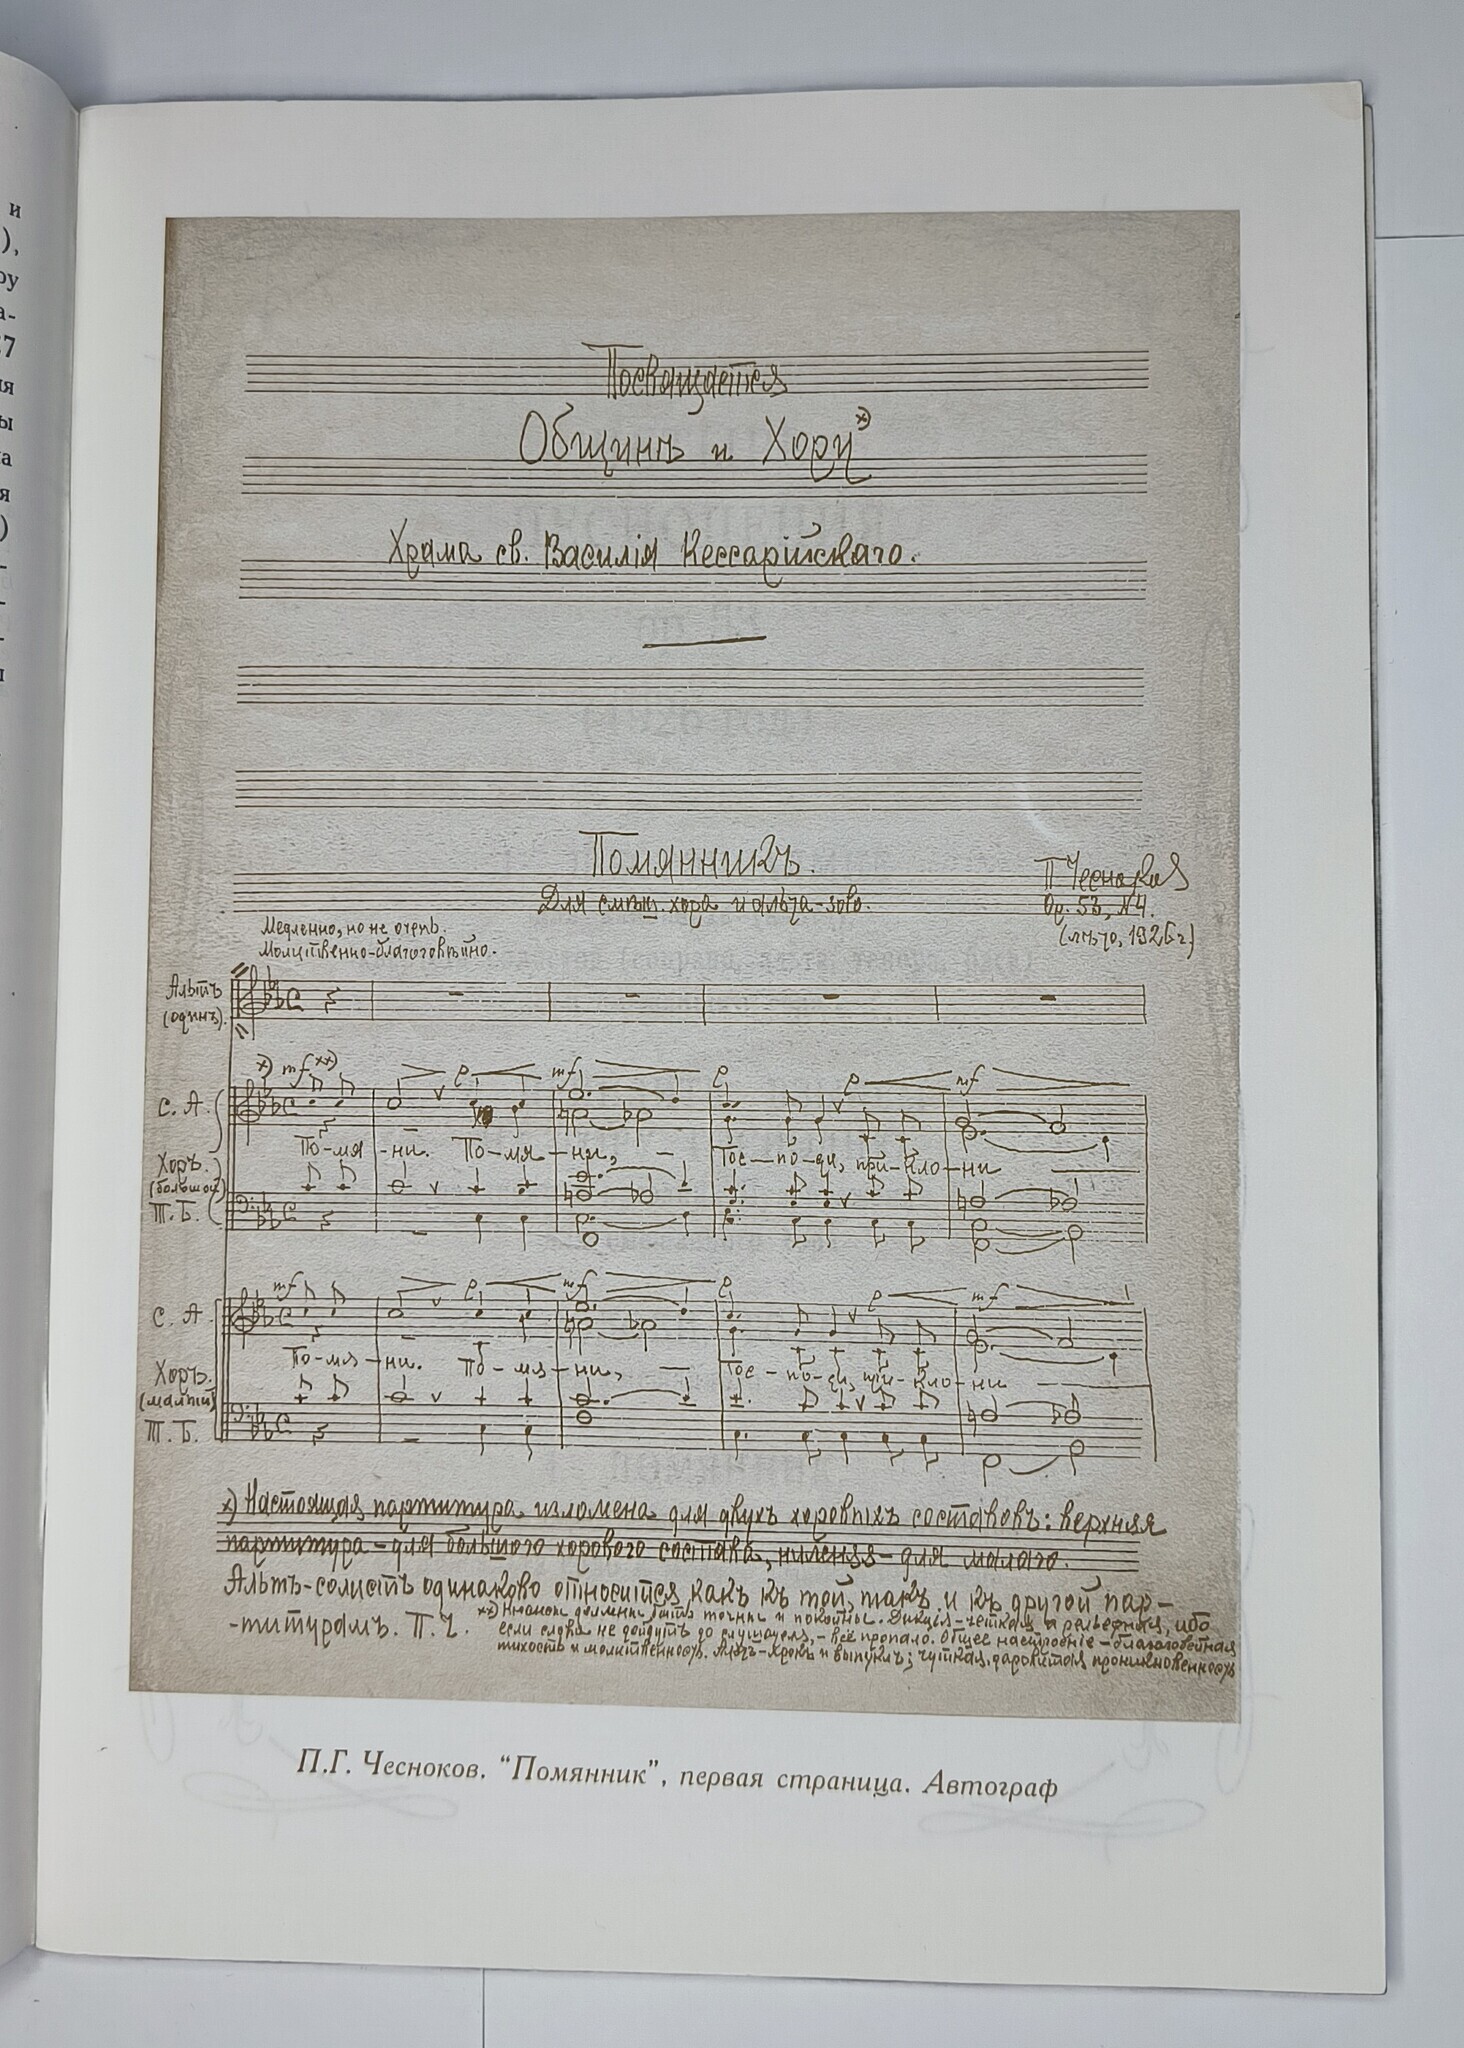 и
),
ру
а-
7
ия
ы
на
я
)
Посвящается
Общинѣ и Хору х)
Храма св. Василія Кессарійскаго.
Помянникъ.
П Чесноков
Для смѣш. хора и альта-соло.
Op. 53, №4.
(лѣто, 1926 г.)
Медленно, но не очень.
Молитвенно-благоговѣйно.
Альтъ
(одинъ).
х) mf хх) p mf p p mf
С. А.
По-мя-ни. По-мя-ни, Гос-по-ди, при-кло-ни
Хоръ.
(большой)
Т. Б.
mf p mf p p mf
С. А.
По-мя-ни. По-мя-ни, Гос-по-ди, при-кло-ни
Хоръ.
(малый)
Т. Б.
х) Настоящая партитура изложена для двухъ хоровыхъ составовъ: верхняя
партитура - для большого хорового состава, нижняя - для малаго.
Альтъ-солистъ одинаково относится какъ къ той, такъ и къ другой пар-
-титурамъ. П. Ч.
хх) Нюансы должны быть точны и покойны. Дикція - четкая и рельефная, ибо
если слова не дойдутъ до слушателя, - всё пропало. Общее настроеніе - благоговейная
тихость и молитвенность. Альтъ - ярокъ и выпуклъ; чуткая, даровитая проникновенность
П.Г. Чесноков. “Помянник”, первая страница. Автограф